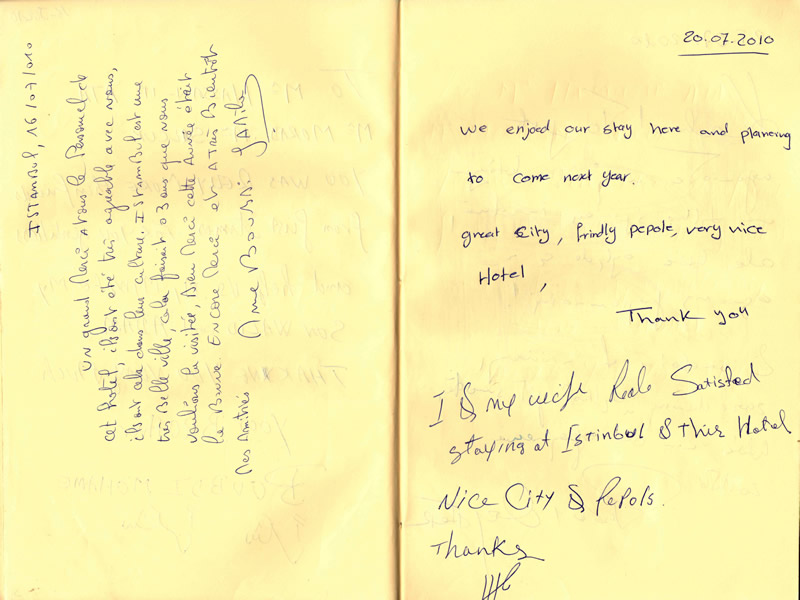 ISTAMBUL, 16/07/010
UN grand Merci à tous le Personnel de
cet hotel, ils ont été très agréable avec nous,
ils ont cela dans leur culture. ISTAMBUL est une
très Belle ville, cela faisait 03 ans que nous
voulions la visitée, Bien Merci cette Année était
la Bonne. Encore Merci et A très Bientôt
Mes Amitiés
20.07.2010
We enjoed our stay here and planning
to come next year.
great City, frindly pepole, very nice
Hotel,
Thank you
I & my wife Reale Satisfed
staying at Istinbol & this Hotel
Nice City & Pepols.
Thanks